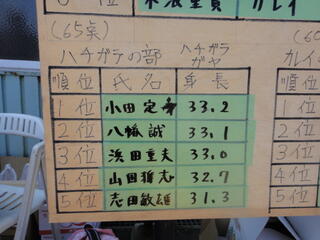 (65点)
ハチガテの部 ハチガラ
ガヤ
順位 氏名 身長
1位 小田定 33.2
2位 八幡誠 33.1
3位 浜田重夫 33.0
4位 山田雅志 32.7
5位 志田敏雄 31.3
カレイ
順位
1位
2位
3位
4位
5位